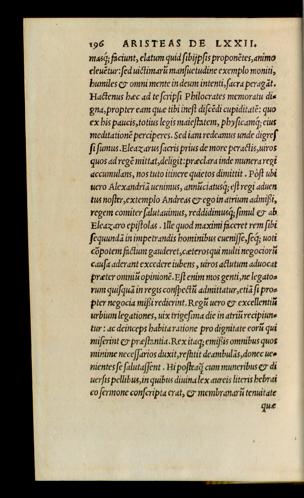 196 ARISTEAS DE LXXII.
masq; faciunt, elatum quid sibijpsis proponẽtes, animo
eleuẽtur: sed uictimarũ mansuetudine exemplo moniti,
humiles & omni mente in deum intenti, sacra peragãt.
Hactenus hæc ad te scripsi Philocrates memoratu di
gna, propter eam quæ tibi inest discẽdi cupiditatẽ: quo
ex his paucis, totius legis maiestatem, physicamq; eius
meditationẽ perciperes. Sed iam redeamus unde digres
si sumus. Eleazarus sacris prius de more peractis, uiros
quos ad regẽ mittat, deligit: præclara inde munera regi
accumulans, nos tuto itinere quietos dimittit. Põst ubi
uero Alexandriã uenimus, annũciatusq; est regi aduen
tus noster, extemplo Andreas & ego in atrium admissi,
regem comiter salutauimus, reddidimusq; simul & ab
Eleazaro epistolas. Ille quod maximi faceret rem sibi
sequundã in impetrandis hominibus cuenisse, seq; uoti
cõpotem factum gauderet, cæteros qui multi negotiorũ
causa aderant excedere iubens, uiros actutum aduocat
præter omniũ opinionẽ. Est enim mos genti, ne legato-
rum quisquã in regis conspectũ admittatur, etiã si pro-
pter negocia missi redierint. Regũ uero & excellentiũ
urbium legationes, uix trigesima die in atriũ recipiun-
tur: ac deinceps habita ratione pro dignitate eorũ qui
miserint & præstantia. Rex itaq; emissis omnibus quos
minime necessarios duxit, restitit deambulãs, donec ue-
nientes se salutassent. Hi posteaq; cum muneribus & di
uersis pellibus, in quibus diuina lex aureis literis hebrai
co sermone conscripta erat, & membranarũ tenuitate
quæ